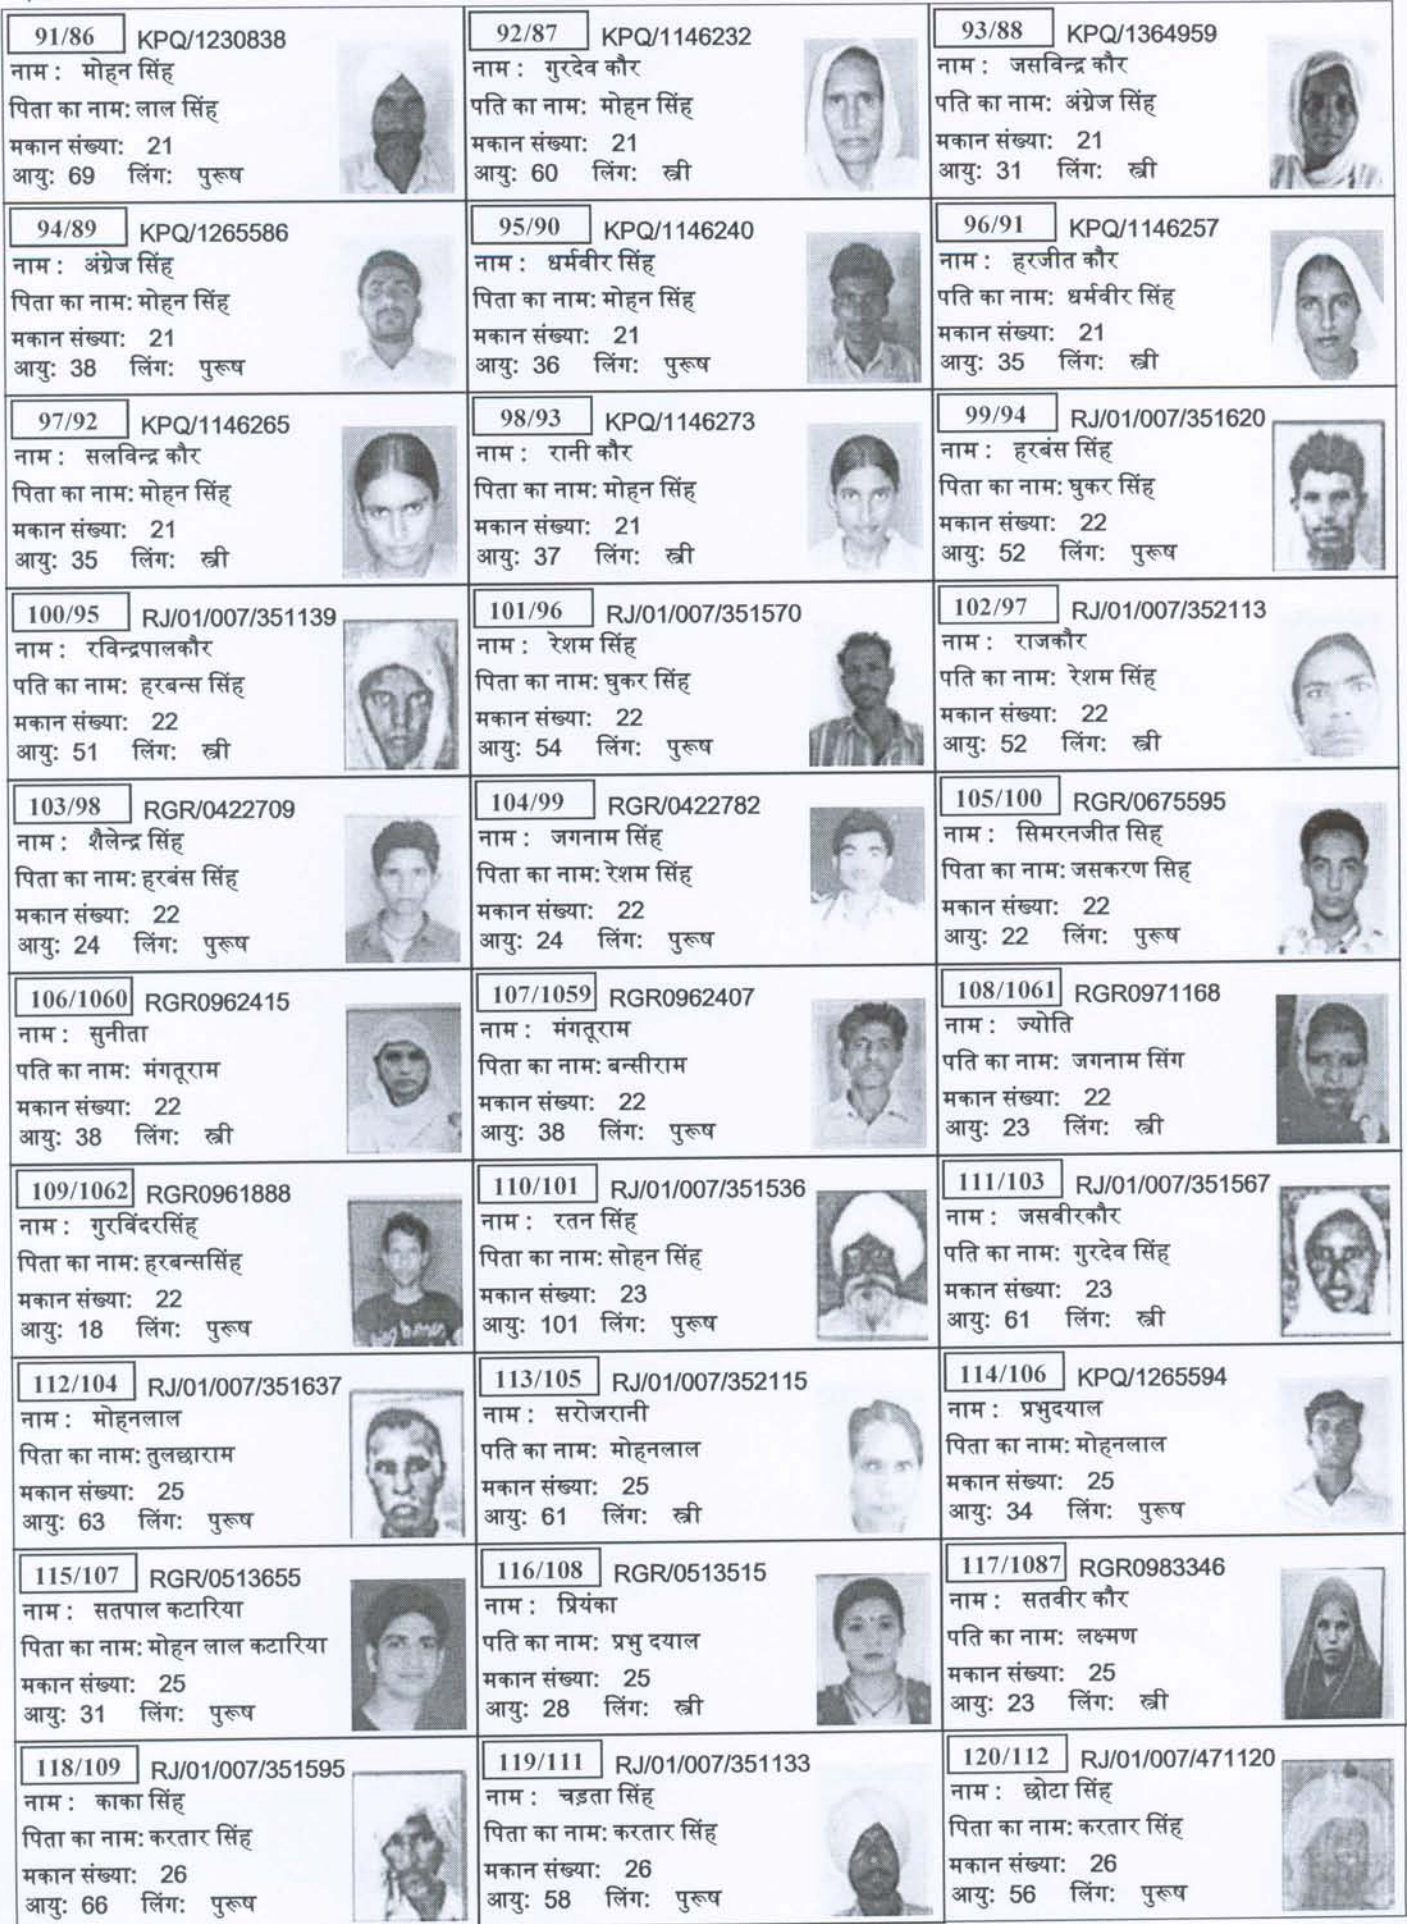 91/86 KPQ/1230838
नाम : मोहन सिंह
पिता का नाम: लाल सिंह
मकान संख्या: 21
आयु: 69 लिंग: पुरूष
92/87 KPQ/1146232
नाम : गुरदेव कौर
पति का नाम: मोहन सिंह
मकान संख्या: 21
आयु: 60 लिंग: स्त्री
93/88 KPQ/1364959
नाम : जसविन्द्र कौर
पति का नाम: अंग्रेज सिंह
मकान संख्या: 21
आयु: 31 लिंग: स्त्री
94/89 KPQ/1265586
नाम : अंग्रेज सिंह
पिता का नाम: मोहन सिंह
मकान संख्या: 21
आयु: 38 लिंग: पुरूष
95/90 KPQ/1146240
नाम : धर्मवीर सिंह
पिता का नाम: मोहन सिंह
मकान संख्या: 21
आयु: 36 लिंग: पुरूष
96/91 KPQ/1146257
नाम : हरजीत कौर
पति का नाम: धर्मवीर सिंह
मकान संख्या: 21
आयु: 35 लिंग: स्त्री
97/92 KPQ/1146265
नाम : सलविन्द्र कौर
पिता का नाम: मोहन सिंह
मकान संख्या: 21
आयु: 35 लिंग: स्त्री
98/93 KPQ/1146273
नाम : रानी कौर
पिता का नाम: मोहन सिंह
मकान संख्या: 21
आयु: 37 लिंग: स्त्री
99/94 RJ/01/007/351620
नाम : हरबंस सिंह
पिता का नाम: घुकर सिंह
मकान संख्या: 22
आयु: 52 लिंग: पुरूष
100/95 RJ/01/007/351139
नाम : रविन्द्रपालकौर
पति का नाम: हरबन्स सिंह
मकान संख्या: 22
आयु: 51 लिंग: स्त्री
101/96 RJ/01/007/351570
नाम : रेशम सिंह
पिता का नाम: घुकर सिंह
मकान संख्या: 22
आयु: 54 लिंग: पुरूष
102/97 RJ/01/007/352113
नाम : राजकौर
पति का नाम: रेशम सिंह
मकान संख्या: 22
आयु: 52 लिंग: स्त्री
103/98 RGR/0422709
नाम : शैलेन्द्र सिंह
पिता का नाम: हरबंस सिंह
मकान संख्या: 22
आयु: 24 लिंग: पुरूष
104/99 RGR/0422782
नाम : जगनाम सिंह
पिता का नाम: रेशम सिंह
मकान संख्या: 22
आयु: 24 लिंग: पुरूष
105/100 RGR/0675595
नाम : सिमरनजीत सिह
पिता का नाम: जसकरण सिह
मकान संख्या: 22
आयु: 22 लिंग: पुरूष
106/1060 RGR0962415
नाम : सुनीता
पति का नाम: मंगतूराम
मकान संख्या: 22
आयु: 38 लिंग: स्त्री
107/1059 RGR0962407
नाम : मंगतूराम
पिता का नाम: बन्सीराम
मकान संख्या: 22
आयु: 38 लिंग: पुरूष
108/1061 RGR0971168
नाम : ज्योति
पति का नाम: जगनाम सिंग
मकान संख्या: 22
आयु: 23 लिंग: स्त्री
109/1062 RGR0961888
नाम : गुरविंदरसिंह
पिता का नाम: हरबन्ससिंह
मकान संख्या: 22
आयु: 18 लिंग: पुरूष
110/101 RJ/01/007/351536
नाम : रतन सिंह
पिता का नाम: सोहन सिंह
मकान संख्या: 23
आयु: 101 लिंग: पुरूष
111/103 RJ/01/007/351567
नाम : जसवीरकौर
पति का नाम: गुरदेव सिंह
मकान संख्या: 23
आयु: 61 लिंग: स्त्री
112/104 RJ/01/007/351637
नाम : मोहनलाल
पिता का नाम: तुलछाराम
मकान संख्या: 25
आयु: 63 लिंग: पुरूष
113/105 RJ/01/007/352115
नाम : सरोजरानी
पति का नाम: मोहनलाल
मकान संख्या: 25
आयु: 61 लिंग: स्त्री
114/106 KPQ/1265594
नाम : प्रभुदयाल
पिता का नाम: मोहनलाल
मकान संख्या: 25
आयु: 34 लिंग: पुरूष
115/107 RGR/0513655
नाम : सतपाल कटारिया
पिता का नाम: मोहन लाल कटारिया
मकान संख्या: 25
आयु: 31 लिंग: पुरूष
116/108 RGR/0513515
नाम : प्रियंका
पति का नाम: प्रभु दयाल
मकान संख्या: 25
आयु: 28 लिंग: स्त्री
117/1087 RGR0983346
नाम : सतवीर कौर
पति का नाम: लक्ष्मण
मकान संख्या: 25
आयु: 23 लिंग: स्त्री
118/109 RJ/01/007/351595
नाम : काका सिंह
पिता का नाम: करतार सिंह
मकान संख्या: 26
आयु: 66 लिंग: पुरूष
119/111 RJ/01/007/351133
नाम : चड़ता सिंह
पिता का नाम: करतार सिंह
मकान संख्या: 26
आयु: 58 लिंग: पुरूष
120/112 RJ/01/007/471120
नाम : छोटा सिंह
पिता का नाम: करतार सिंह
मकान संख्या: 26
आयु: 56 लिंग: पुरूष